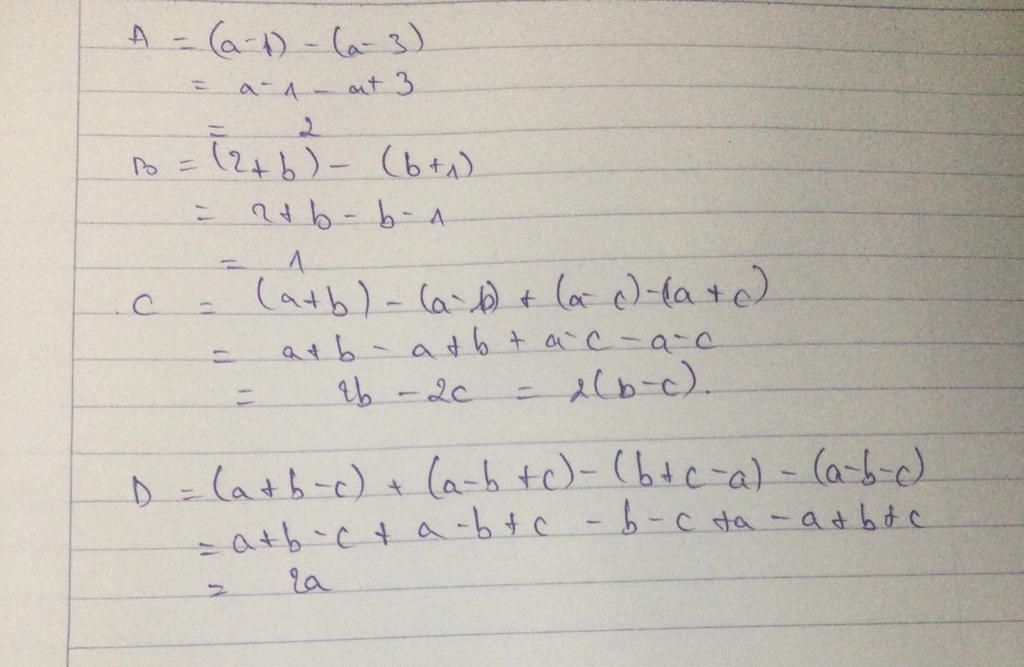 A = (a-1) - (a-3)
= a-1 - a+3
= 2
B = (2+b) - (b+1)
= 2+b - b-1
= 1
C = (a+b) - (a-b) + (a-c)-(a+c)
= a+b - a+b + a-c - a-c
= 2b - 2c = 2(b-c).
D = (a+b-c) + (a-b+c) - (b+c-a) - (a-b-c)
= a+b-c + a-b+c - b-c +a - a+b+c
= 2a